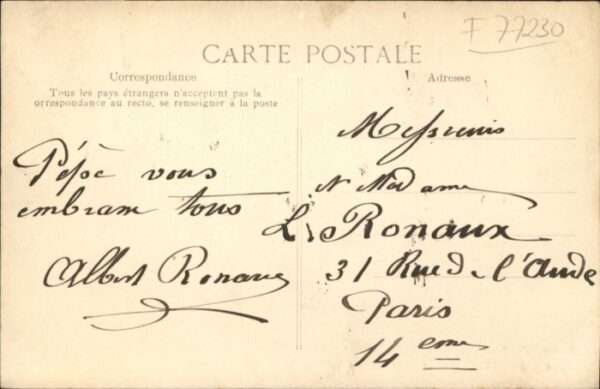 F 77230
CARTE POSTALE
Correspondance
Tous les pays étrangers n'acceptent pas la
correspondance au recto, se renseigner à la poste
Pépé vous
embrasse tous
Albert Ronaux
Adresse
Messieurs
et Madame
L. Ronaux
31 Rue de l'Aude
Paris
14 eme